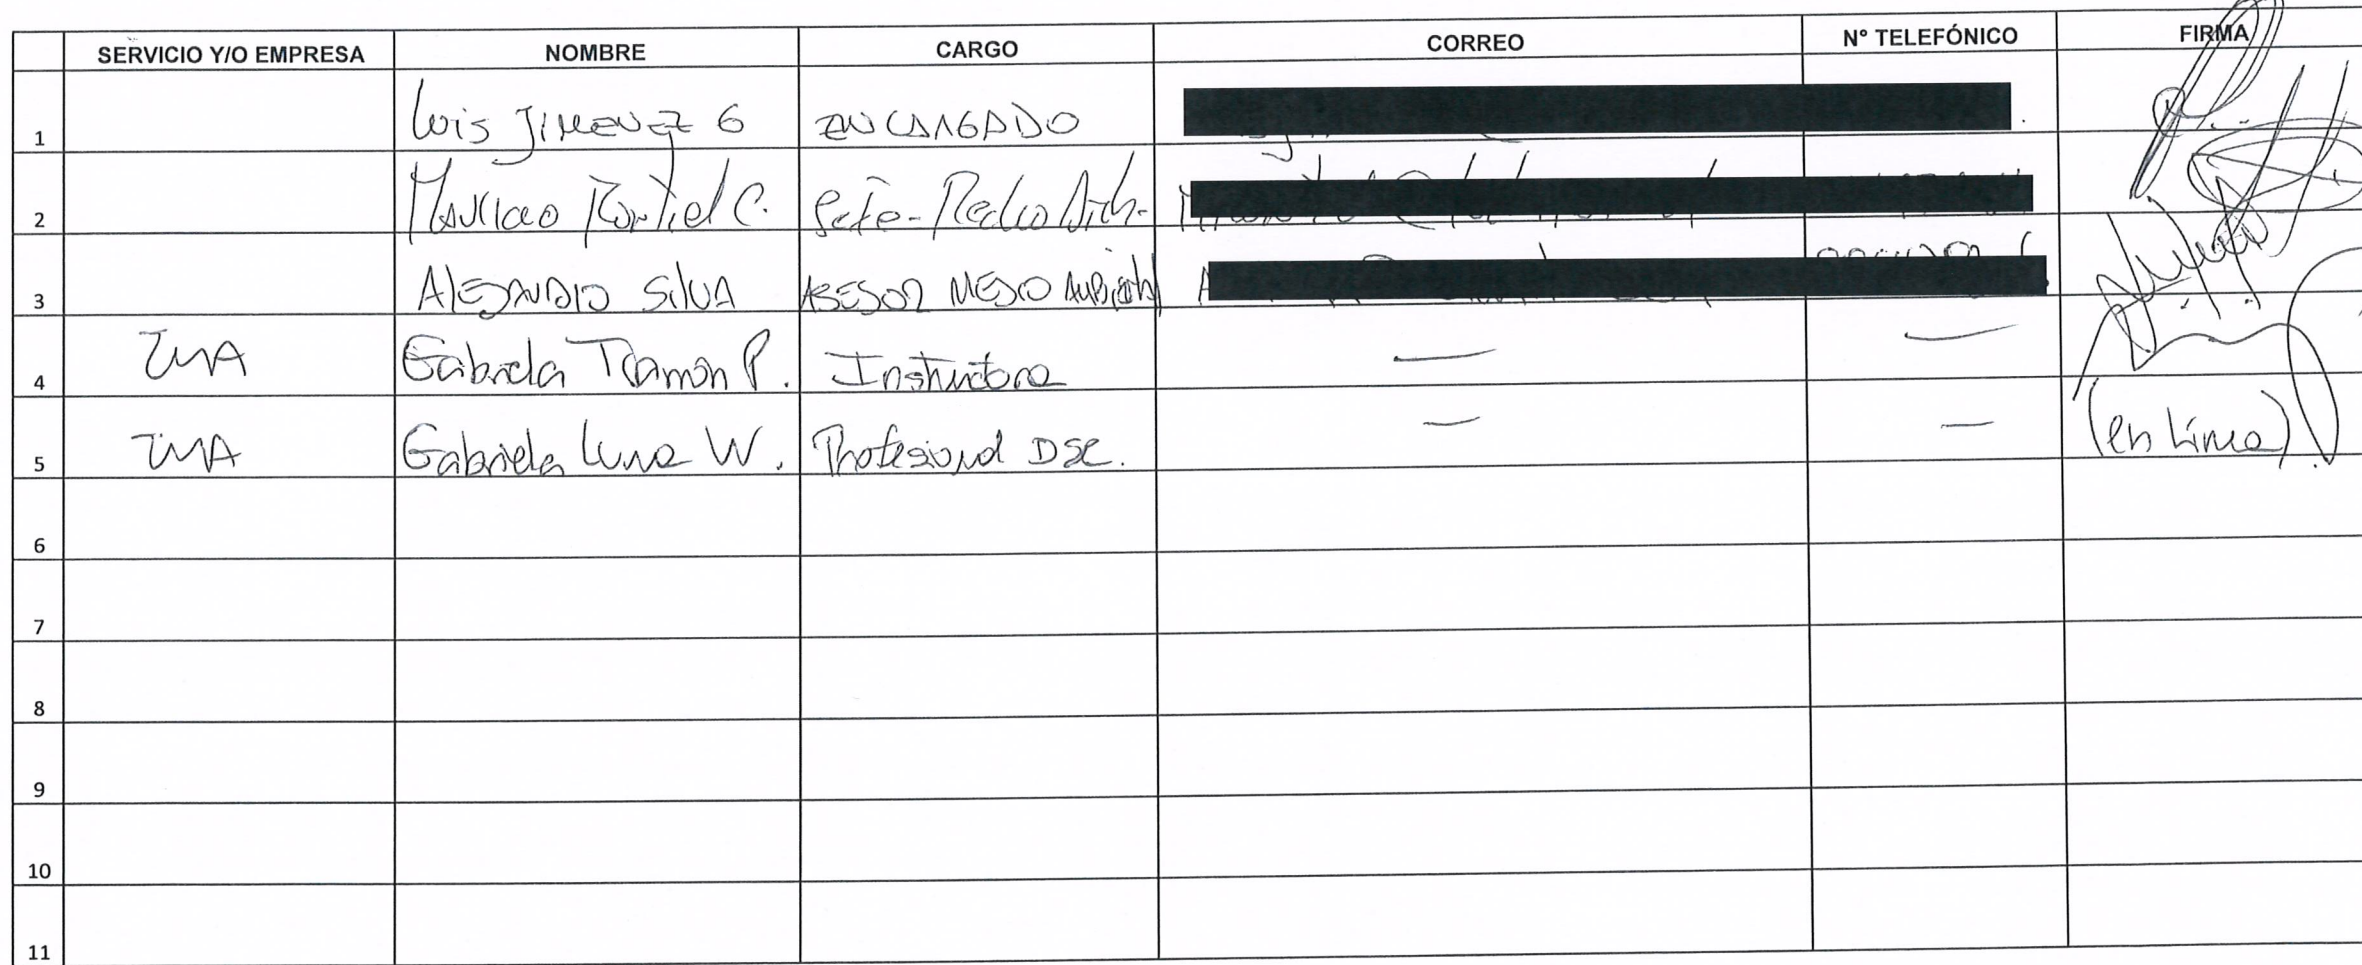 SERVICIO Y/O EMPRESA NOMBRE CARGO CORREO N° TELEFÓNICO FIRMA
1 Luis JIMENEZ G ENCARGADO
2 Mauricio C.
3 Alejandro Silva ASESOR MEDIO
4 SMA Gabriela Tramón P. Instructora — —
5 SMA Gabriela Luna W. Profesional DSC. — — (en línea)
6
7
8
9
10
11